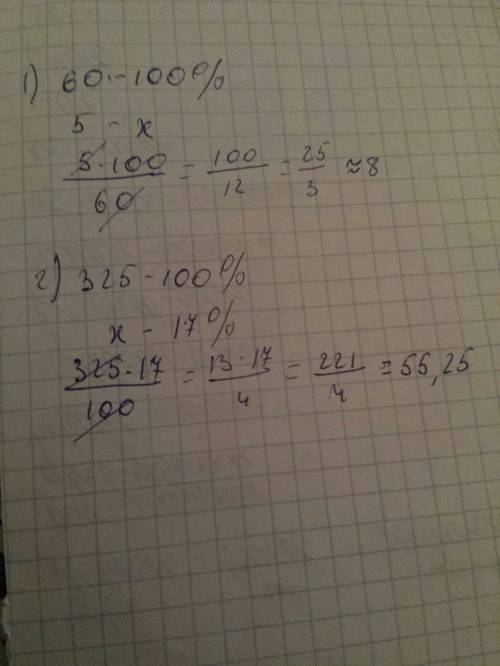 1) 60 - 100%
5 - x
5·100/60 = 100/12 = 25/3 ≈ 8
2) 325 - 100%
x - 17%
325·17/100 = 13·17/4 = 221/4 = 55,25